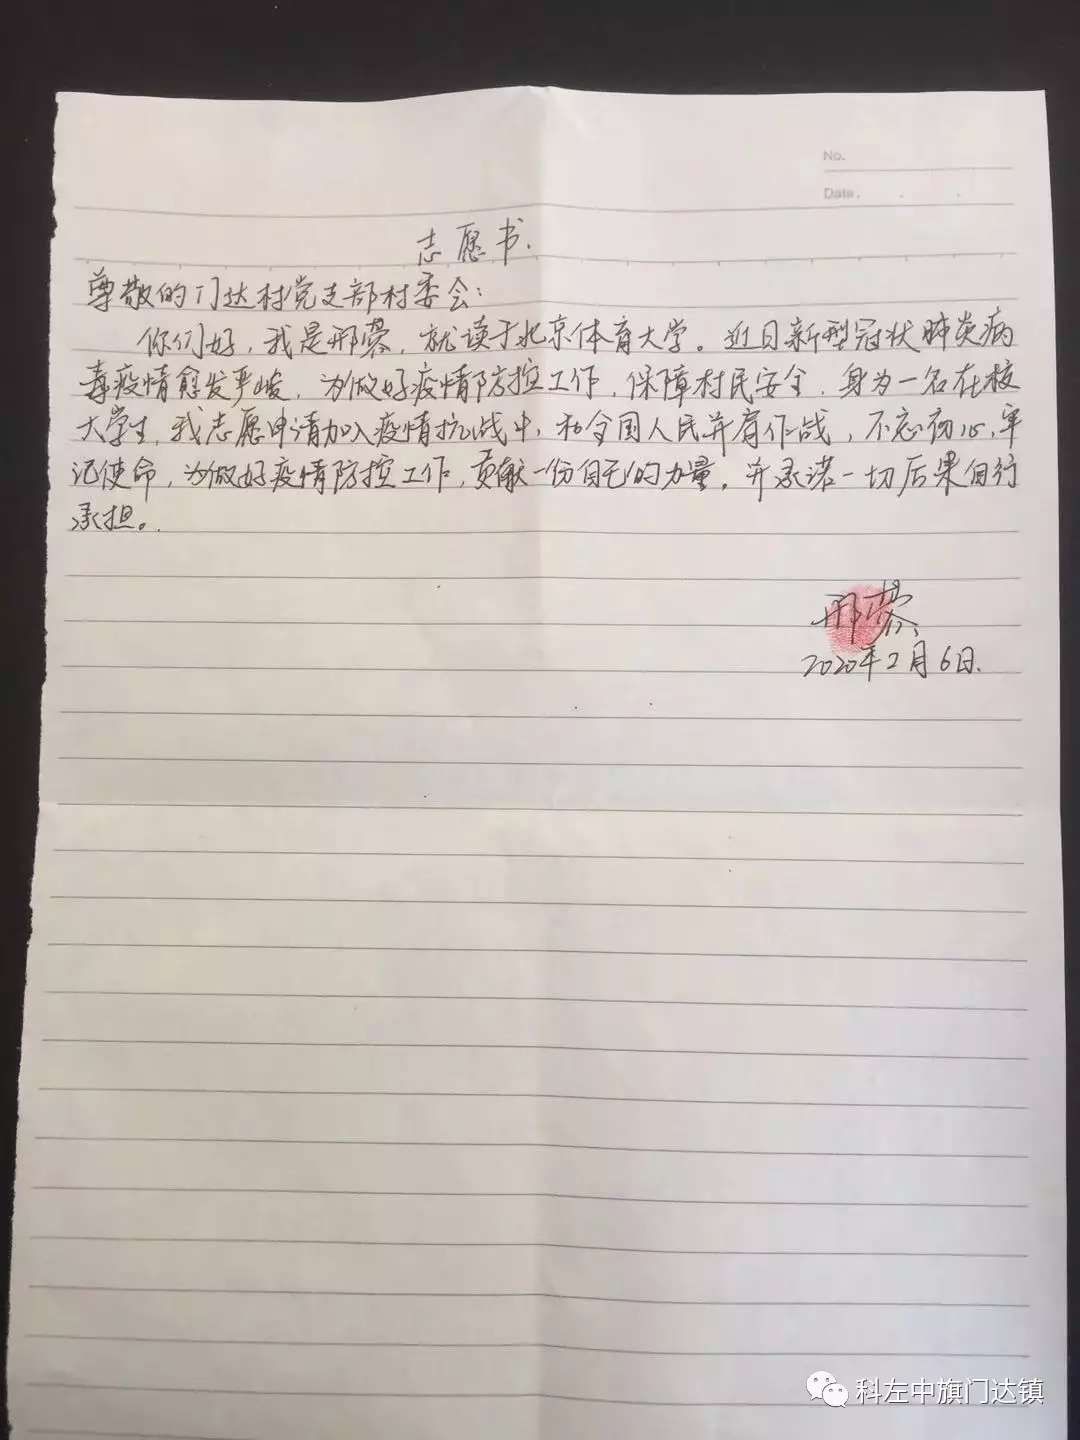 No.
Date. . .
志愿书.
尊敬的门达村党支部村委会:
你们好,我是邢蓉,就读于北京体育大学。近日新型冠状肺炎病
毒疫情愈发严峻,为做好疫情防控工作,保障村民安全,身为一名在校
大学生,我志愿申请加入疫情抗战中,和全国人民并肩作战,不忘初心,牢
记使命,为做好疫情防控工作,贡献一份自己的力量。并承诺一切后果自行
承担。
邢蓉
2020年2月6日.
科左中旗门达镇